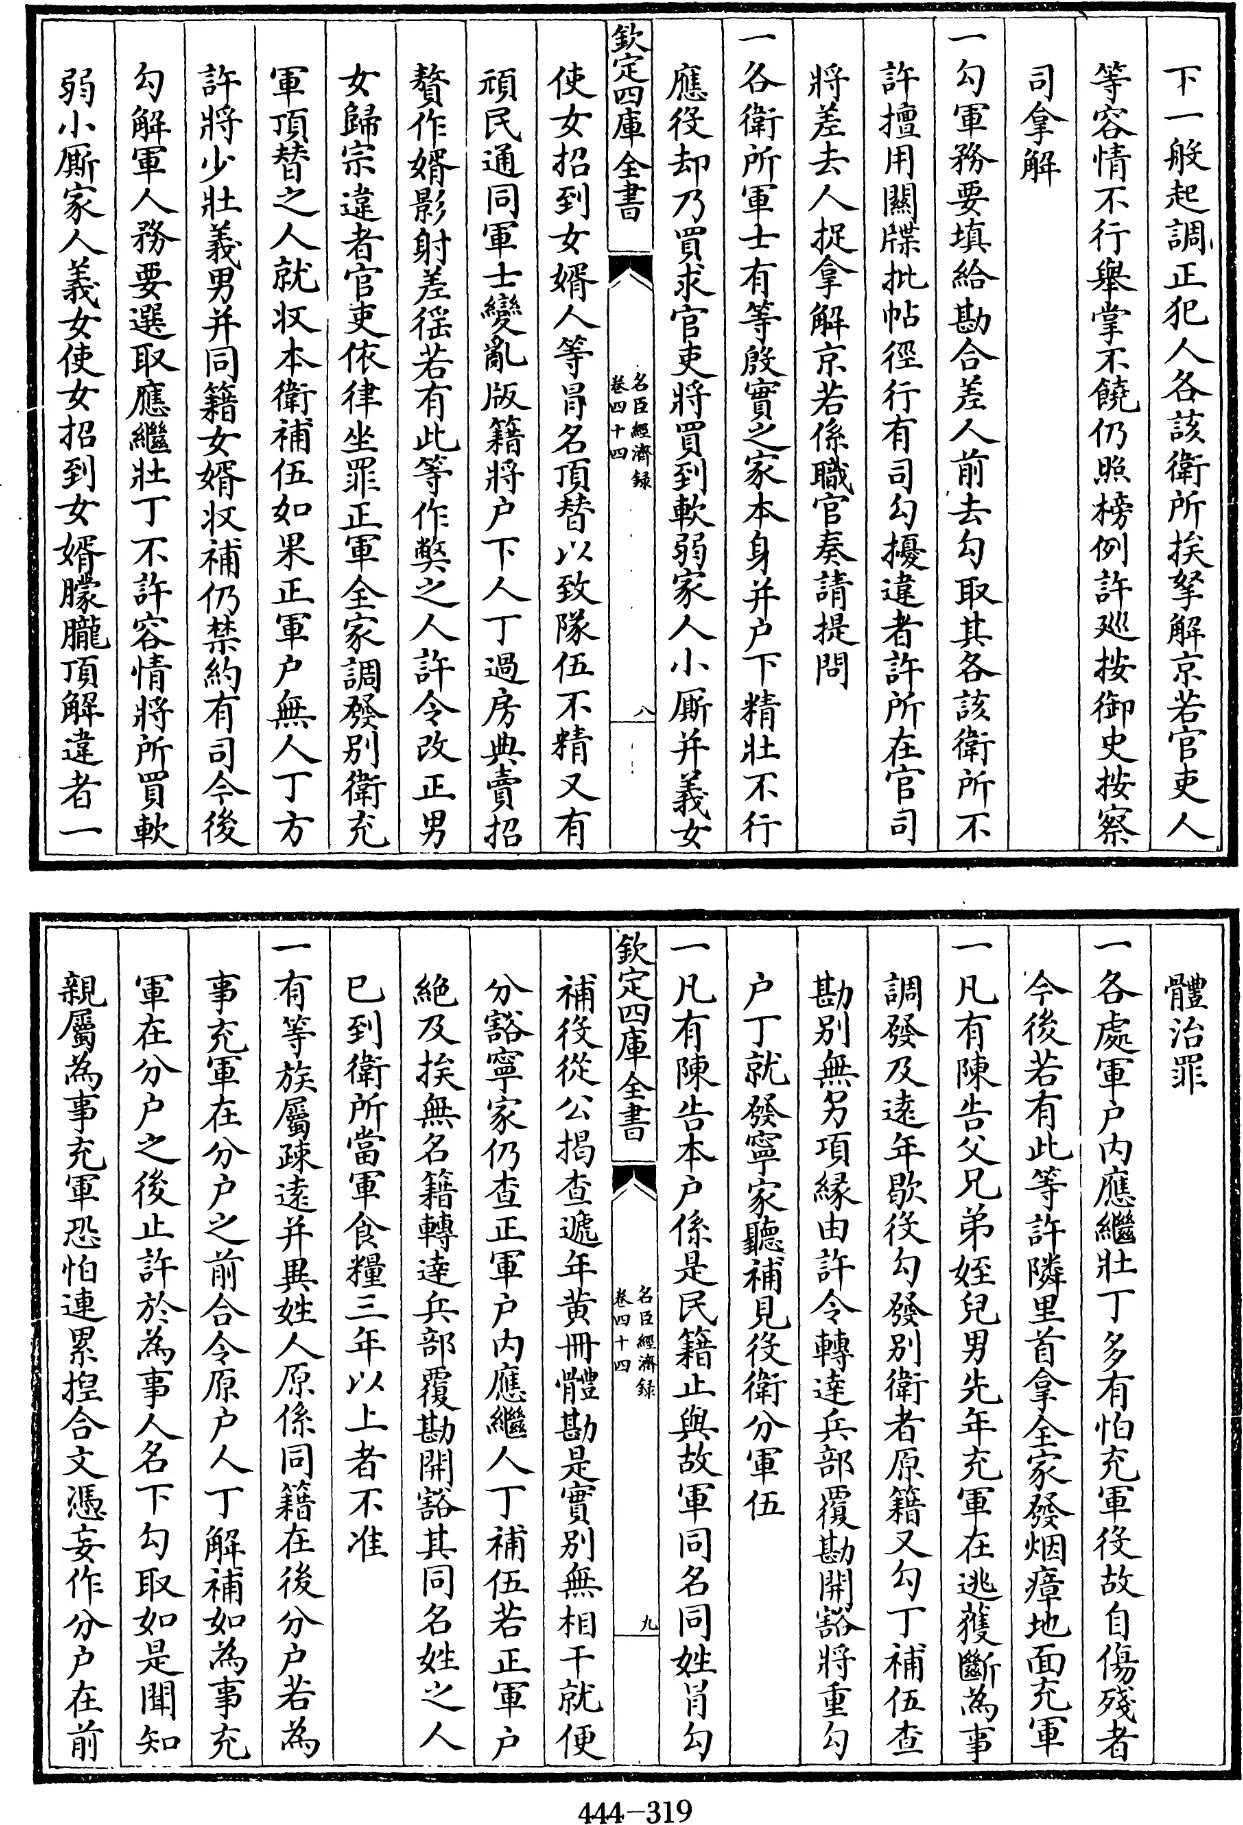 下一般起調正犯人各該衛所挨拏解京若官吏人
等容情不行舉掌不饒仍照榜例許廵按御史按察
司拿解
一勾軍務要填給勘合差人前去勾取其各該衛所不
許擅用關牒批帖徑行有司勾擾違者許所在官司
將差去人捉拿解京若係職官奏請提問
一各衛所軍士有等殷實之家本身并户下精壯不行
應役却乃買求官吏將買到軟弱家人小厮并義女
欽定四庫全書
名臣經濟録
卷四十四
八
使女招到女婿人等冐名頂替以致隊伍不精又有
頑民通同軍士變亂版籍將户下人丁過房典賣招
贅作婿影射差徭若有此等作弊之人許令改正男
女歸宗違者官吏依律坐罪正軍全家調發别衛充
軍頂替之人就収本衛補伍如果正軍户無人丁方
許將少壯義男并同籍女婿収補仍禁約有司今後
勾解軍人務要選取應繼壯丁不許容情將所買軟
弱小厮家人義女使女招到女婿朦朧頂解違者一
體治罪
一各處軍户内應繼壯丁多有怕充軍役故自傷殘者
今後若有此等許隣里首拿全家發烟瘴地面充軍
一凡有陳告父兄弟姪兒男先年充軍在逃獲斷為事
調發及遠年歇役勾發别衛者原籍又勾丁補伍查
勘别無另項緣由許令轉達兵部覆勘開豁將重勾
户丁就發寧家聽補見役衛分軍伍
一凡有陳告本户係是民籍止與故軍同名同姓肖勾
欽定四庫全書
名臣經濟録
卷四十四
九
補役從公揭查遞年黄冊體勘是實别無相干就便
分豁寧家仍查正軍户内應繼人丁補伍若正軍户
絶及挨無名籍轉達兵部覆勘開豁其同名姓之人
已到衛所當軍食糧三年以上者不准
一有等族屬疎遠并異姓人原係同籍在後分户若為
事充軍在分户之前合令原户人丁解補如為事充
軍在分户之後止許於為事人名下勾取如是聞知
親屬為事充軍恐怕連累揑合文憑妄作分户在前
444-319